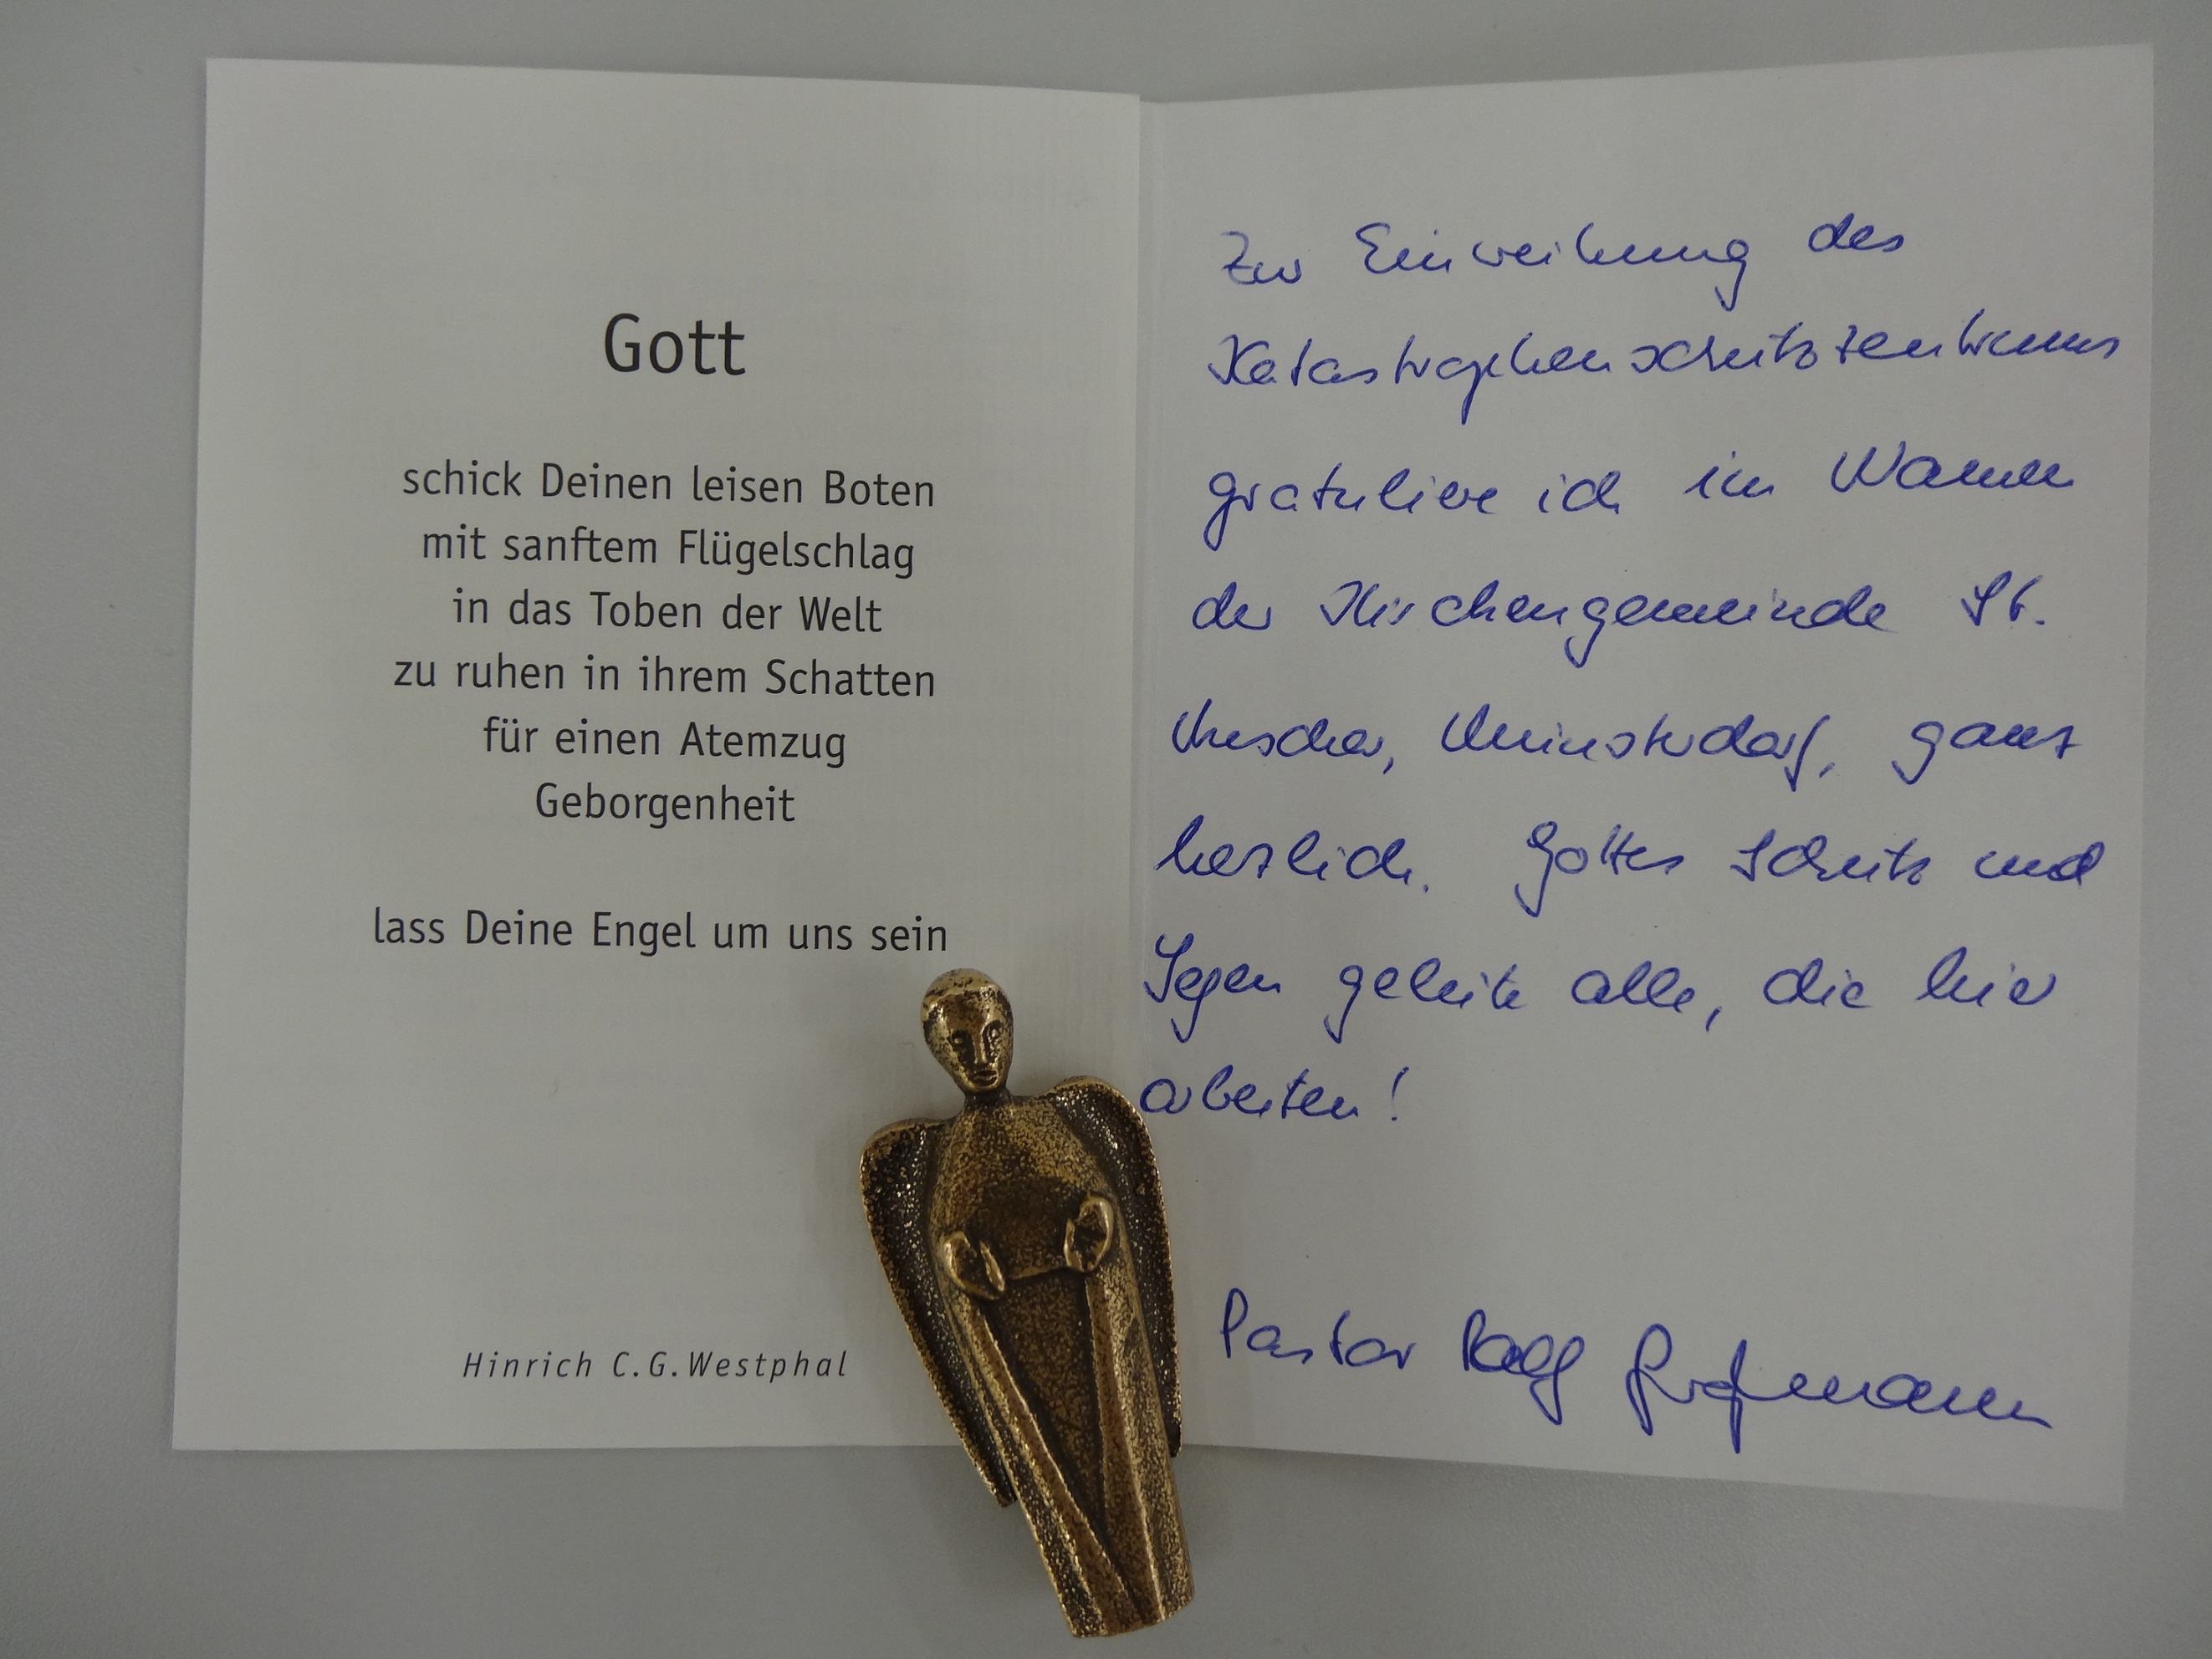 Gott
schick Deinen leisen Boten
mit sanftem Flügelschlag
in das Toben der Welt
zu ruhen in ihrem Schatten
für einen Atemzug
Geborgenheit
lass Deine Engel um uns sein
Hinrich C.G.Westphal
Zur Einweihung des
Katastrophenschutzzentrums
gratuliere ich im Namen
der Kirchengemeinde St.
ganz
herzlich. Gottes Schutz und
Segen geleite alle, die hier
arbeiten!
Pastor